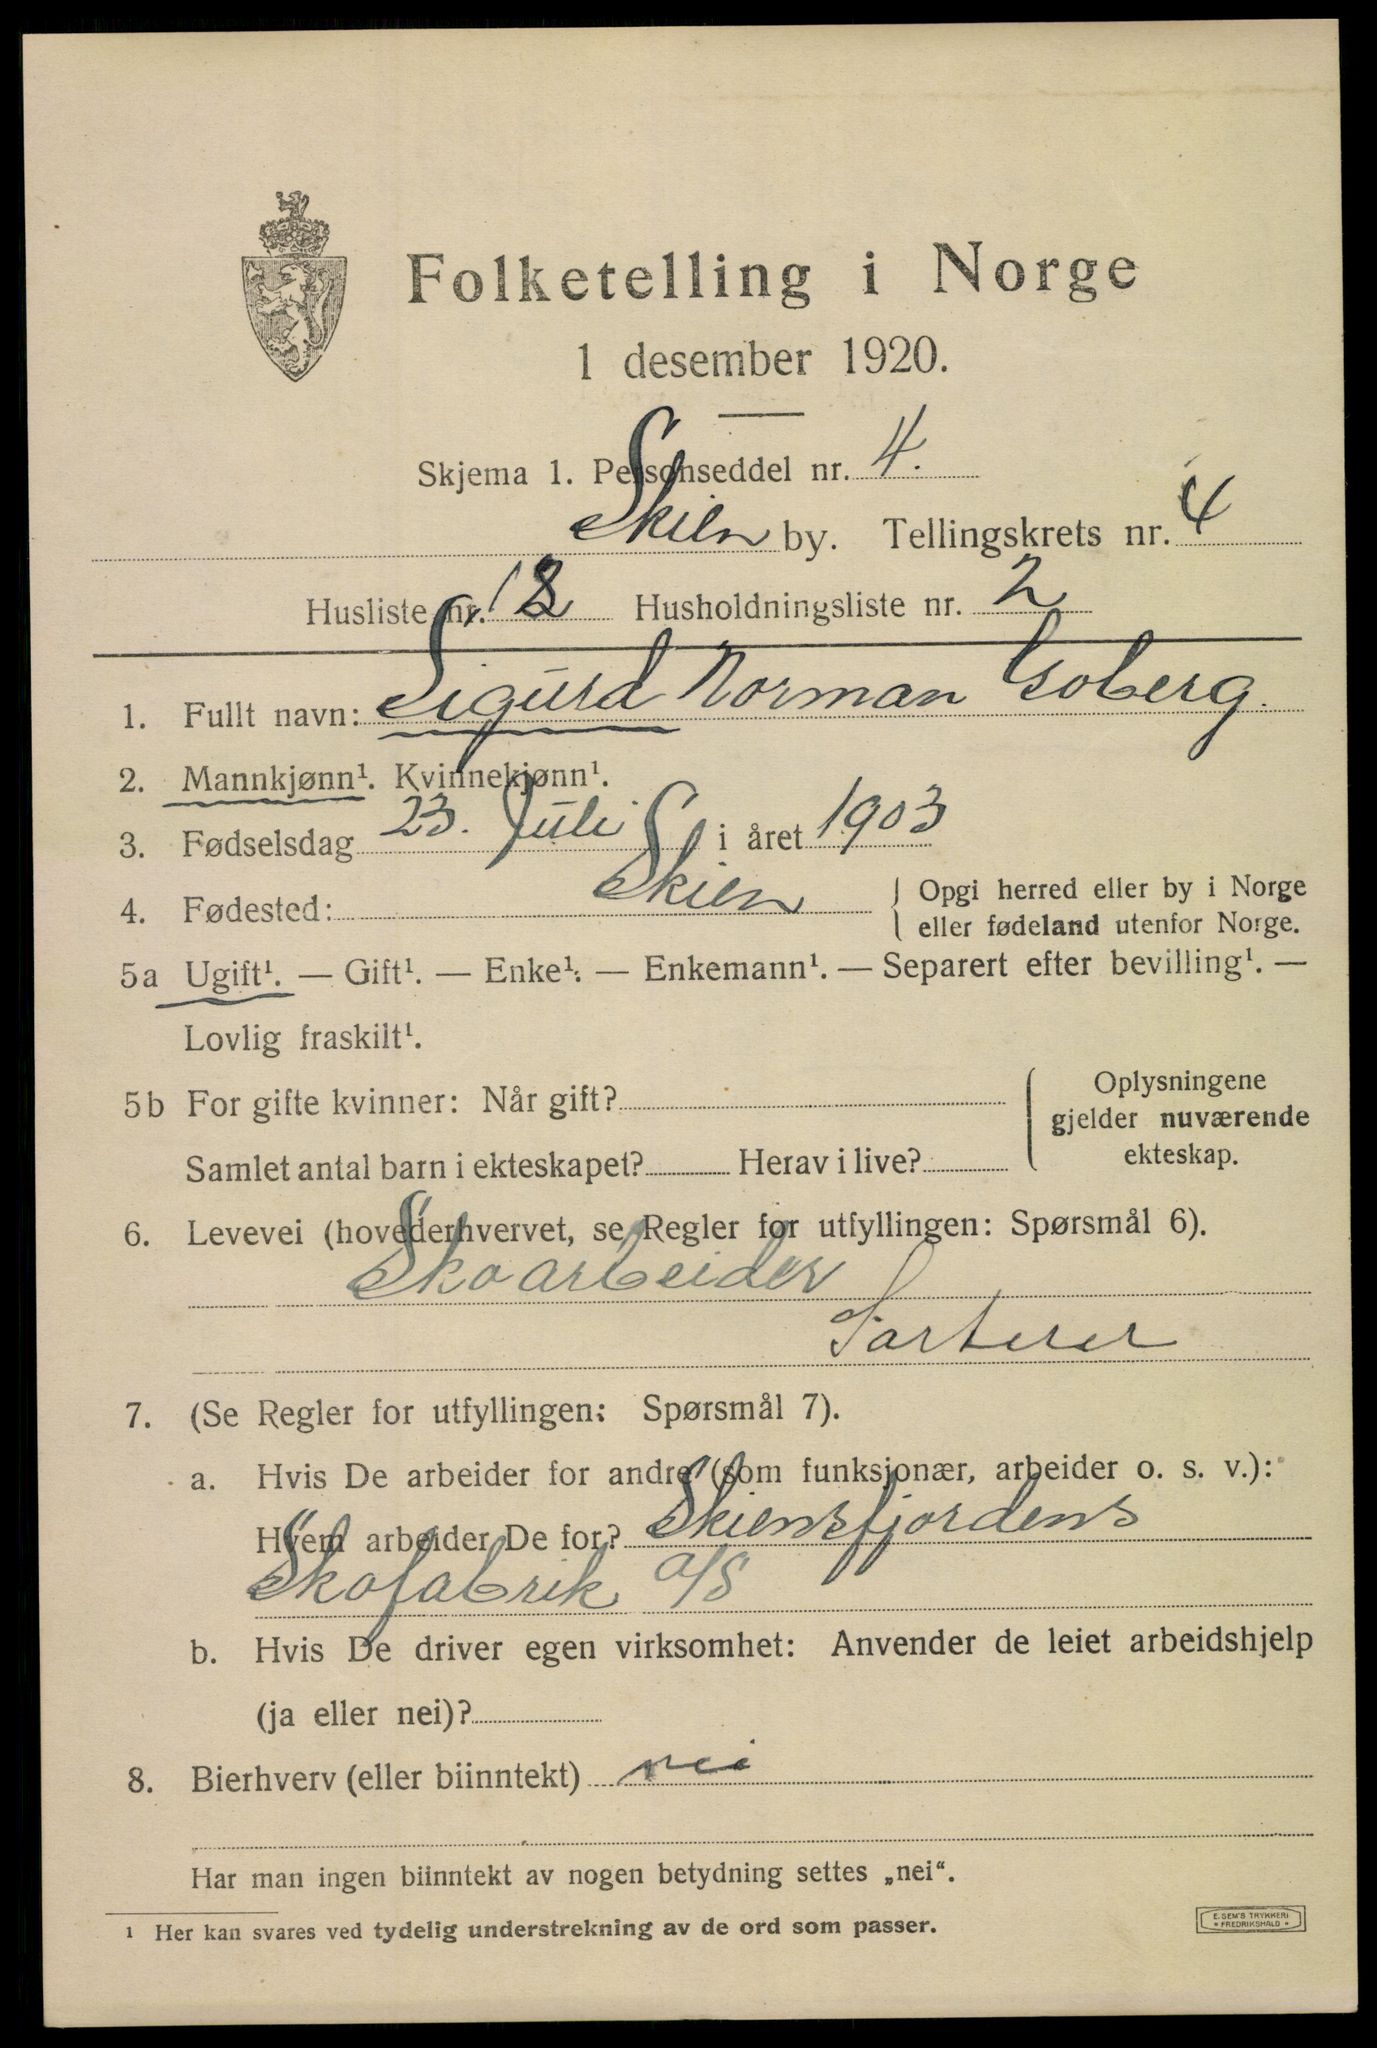 Folketelling i Norge
1 desember 1920.
Skjema 1. Personseddel nr. 4.
Skien by. Tellingskrets nr. 4
Husliste nr. 12 Husholdningsliste nr. 2
1. Fullt navn: Sigurd Norman Goberg.
2. Mannkjønn¹. Kvinnekjønn¹.
3. Fødselsdag 23. Juli i året 1903
4. Fødested: Skien { Opgi herred eller by i Norge
eller fødeland utenfor Norge.
5a Ugift¹. — Gift¹. — Enke¹. — Enkemann¹. — Separert efter bevilling¹. —
Lovlig fraskilt¹.
5b For gifte kvinner: Når gift? { Oplysningene
gjelder nuværende
Samlet antal barn i ekteskapet? Herav i live? ekteskap.
6. Levevei (hovederhvervet, se Regler for utfyllingen: Spørsmål 6).
Skoarbeider
Sorterer
7. (Se Regler for utfyllingen: Spørsmål 7).
a. Hvis De arbeider for andre (som funksjonær, arbeider o. s. v.):
Hvem arbeider De for? Skiensfjordens
Skofabrik a/s
b. Hvis De driver egen virksomhet: Anvender de leiet arbeidshjelp
(ja eller nei)?
8. Bierhverv (eller biinntekt) nei
Har man ingen biinntekt av nogen betydning settes „nei“.
¹ Her kan svares ved tydelig understrekning av de ord som passer.
E. SEM'S TRYKKERI
• FREDRIKSHALD •